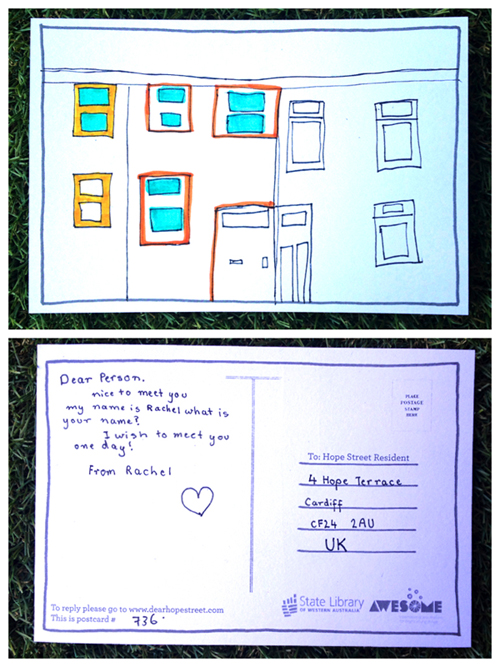 Dear Person.
nice to meet you
my name is Rachel what is
your name?
I wish to meet you
one day!
From Rachel
To reply please go to www.dearhopestreet.com
This is postcard # 736.
PLACE
POSTAGE
STAMP
HERE
To: Hope Street Resident
4 Hope Terrace
Cardiff
CF24 2AU
UK
State Library
OF WESTERN AUSTRALIA
AWESOME